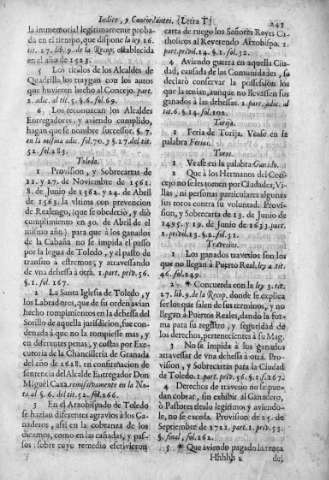 Indice, y Concordantes. (Letra T) 243
la immemorial legitimamente probada
en el tiempo, que dispone la ley 16.
tit. 27. lib. 9. de la Recop. establecida
en el año de 1523.
5 Los titulos de los Alcaldes de
Quadrilla con testimonio de los autos
que huvieren hecho al Concejo. part.
2. adic. al tit. 5. §. 6. fol. 69.
6 Los recusaren los Alcaldes
Entregadores, y aviendo cumplido,
hagan que se nombre sucessor. §. 7.
en la misma adic. fol. 70. y §. 27. del tit.
52. fol. 285.
Toledo.
1 Provision, y Sobrecartas de
22. y 27. de Noviembre de 1561.
8. de Junio de 1562. y 24. de Abril
de 1563. la vltima con prevencion
de Realengo, (que se obedeció, y dió
cumplimiento en 30. de Abril de el
mismo año.) para que à los ganados
de la Cabaña no se impida el passo
por la legua de Toledo, y el pasto de
transito à estremos, y atravessando
de vna dehessa à otra. 1. part. priv. 56.
§. 1. fol. 167.
2 La Santa Iglesia de Toledo, y
los Labradores, que de su orden avian
hecho rompimientos en la dehessa del
Sotillo de aquella jurisdicion, fue condenada
à que no la rompiesse mas, y
en diferentes penas, y costas por Executoria
de la Chancilleria de Granada
del año de 1628. en confirmacion de
sentencia del Alcalde Entregador Don
Miguel Caxa. remissivamente en la Nota
al §. 6. del tit. 52. fol. 266.
3 En el Arzobispado de Toledo
se hazian diferentes agravios à los Ganaderos,
assi en la cobranza de los
diezmos, como en las cañadas, y passos:
sobre cuyo remedio escrivieron
carta de ruego los Señores Reyes Catholicos
al Reverendo Arzobispo. 1.
part. privil. 14. §. 1. fol. 52.
4 Aviendo guerra en aquella Ciudad,
causada de las Comunidades, se
declaró conservar la possession los
que la tenian, aunque no llevassen sus
ganados à las dehessas. 2. part. adic. al
tit. 6. §. 14. fol. 102.
Torija.
1 Feria de Torija. Vease en su
palabra Ferias.
Toros.
1 Vease en la palabra Ganado.
2 Que à los Hermanos del Concejo
no se les tomen por Ciudades, Villas,
ni personas particulares algunas
sus toros contra su voluntad. Provision,
y Sobrecarta de 13. de Junio de
1495. y 19. de Junio de 1633. part.
1. priv. 23. §. 2. fol. 51.
Travesios.
1 Los ganados travesios son los
que no llegan à Puerto Real. ley 2. tit.
56. fol. 249.
2 Concuerda con la ley 3. tit.
27. lib. 9. de la Recop. donde se explica
ser los que salen de sus terminos, y no
llegan à Puertos Reales, dando la forma
para su registro, y seguridad de
los derechos, pertenecientes à su Mag.
3 No se impida à sus ganados
atravessar de vna dehessa à otra. Provision,
y Sobrecartas para la Ciudad
de Toledo. 1. part. priv. 56. §. 1. fol. 167.
4 Derechos de travesio no se puedan
cobrar, sin exhibir al Ganadero,
ò Pastores titulo legitimo, y aviendolo,
no se exceda. Provision de 15. de
Septiembre de 1712. part. 1. priv. 53.
§. final, fol. 262.
5 Que aviendo pagado la renta
Hhhhh 2 de